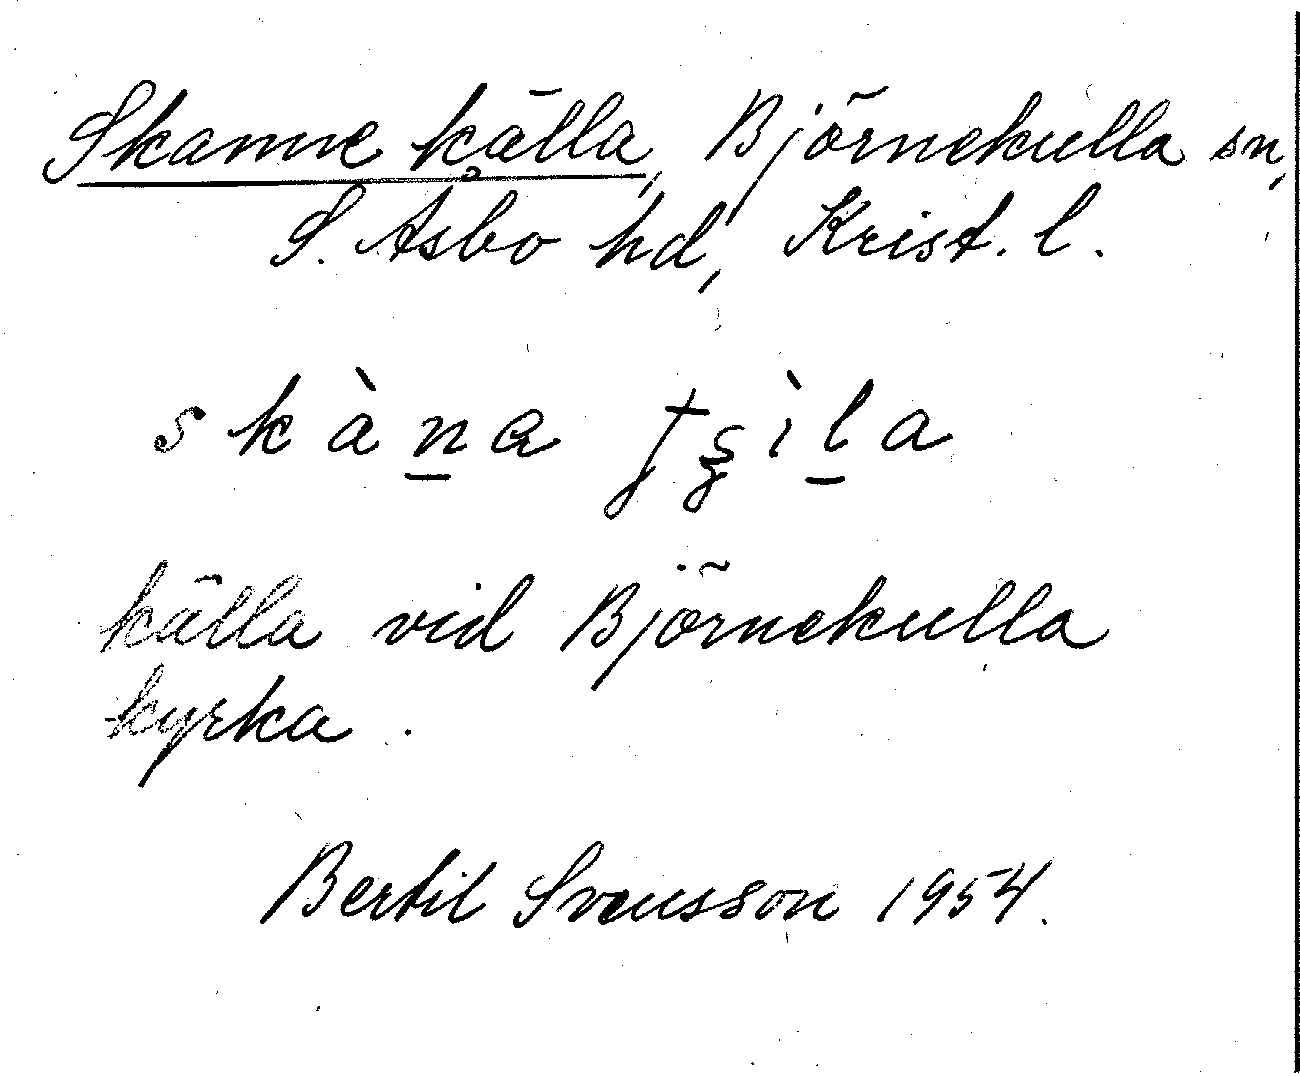 Skanne källa, Björnekulla sn,
S. Åsbo hd, Krist. l.
källa vid Björnekulla
kyrka.
Bertil Svensson 1954.